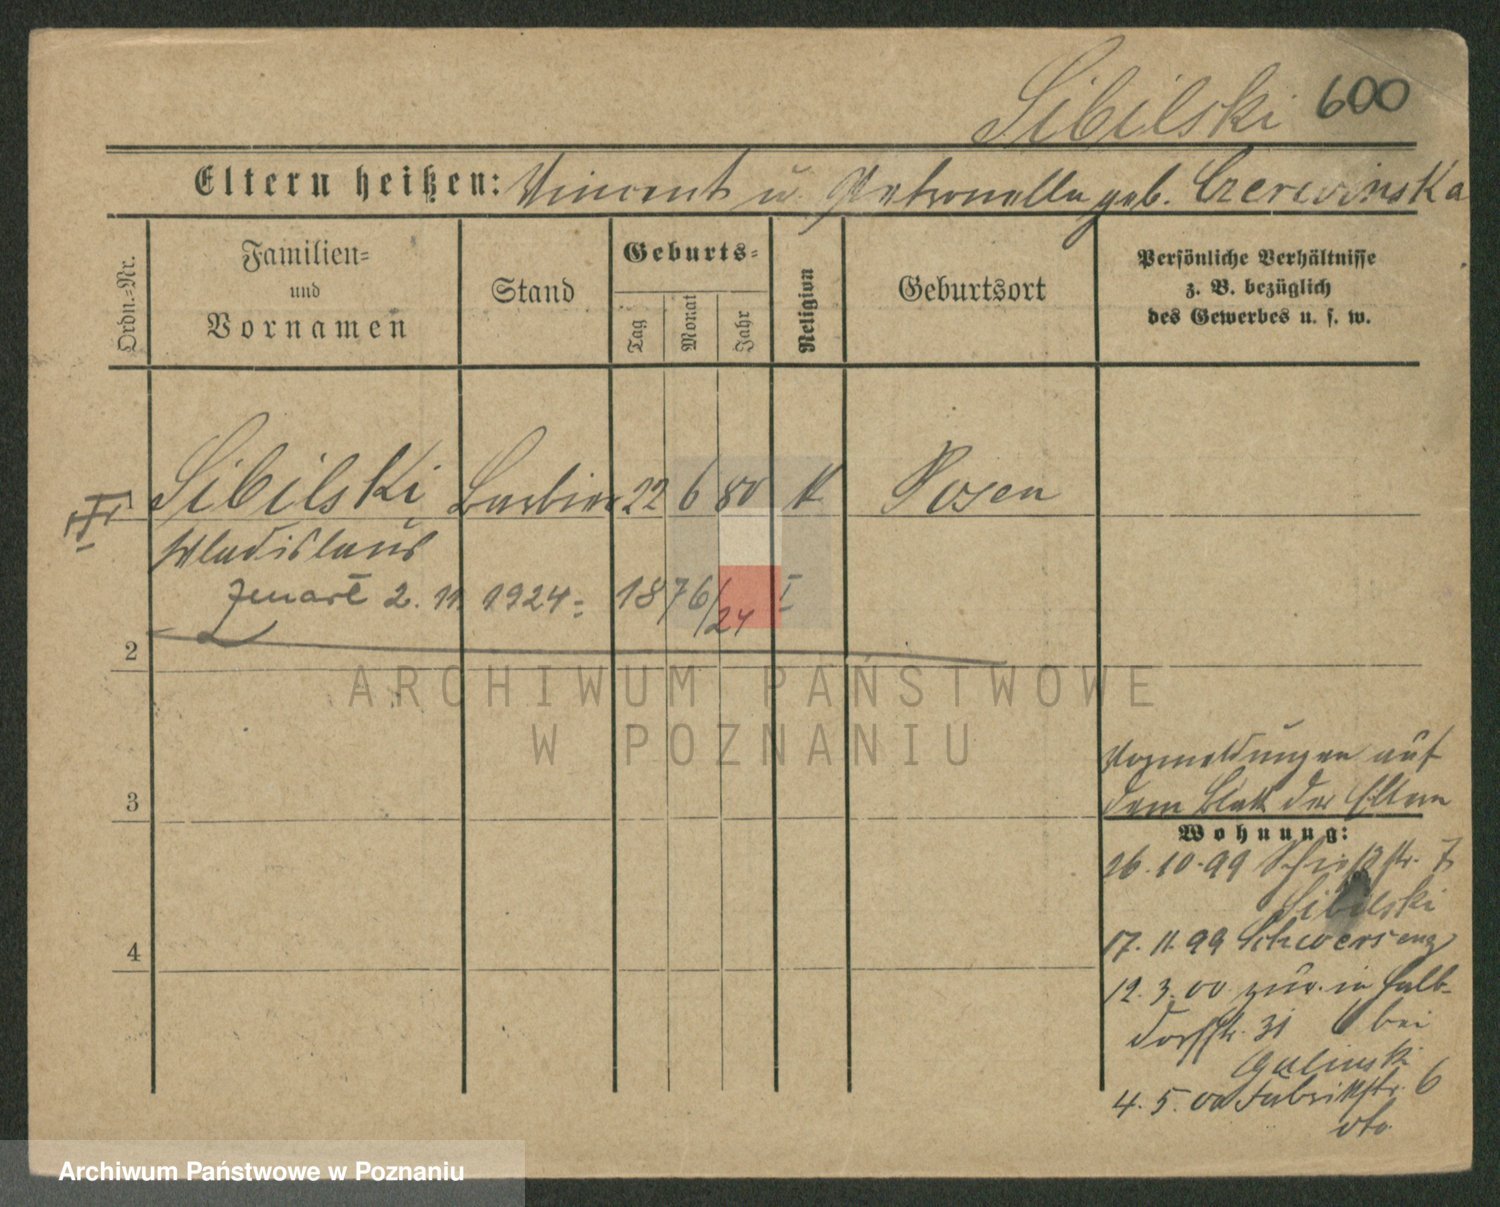 Sibilski 600
Eltern heißen: Vincent u. Petronella geb. Czerwinska
Ordn.=Nr.
Familien=
und
Vornamen
Stand
Geburts=
Tag
Monat
Jahr
Religion
Geburtsort
Persönliche Verhältnisse
z. B. bezüglich
des Gewerbes u. s. w.
1 Sibilski Barbier 22 6 80 K Posen
Wladislaus
Zmarł 2. 11. 1924 = 1876/24 I
2
ARCHIWUM PAŃSTWOWE
W POZNANIU
3
Vormeldungen auf
dem Blatt der Eltern
Wohnung:
26. 10. 99 Schießstr. 7
Sibilski
17. 11. 99 Schwersenz
4
12. 3. 00 zur. in Halb-
dorfstr. 31 bei
Galinski
4. 5. 00 Fabrikstr. 6
Archiwum Państwowe w Poznaniu